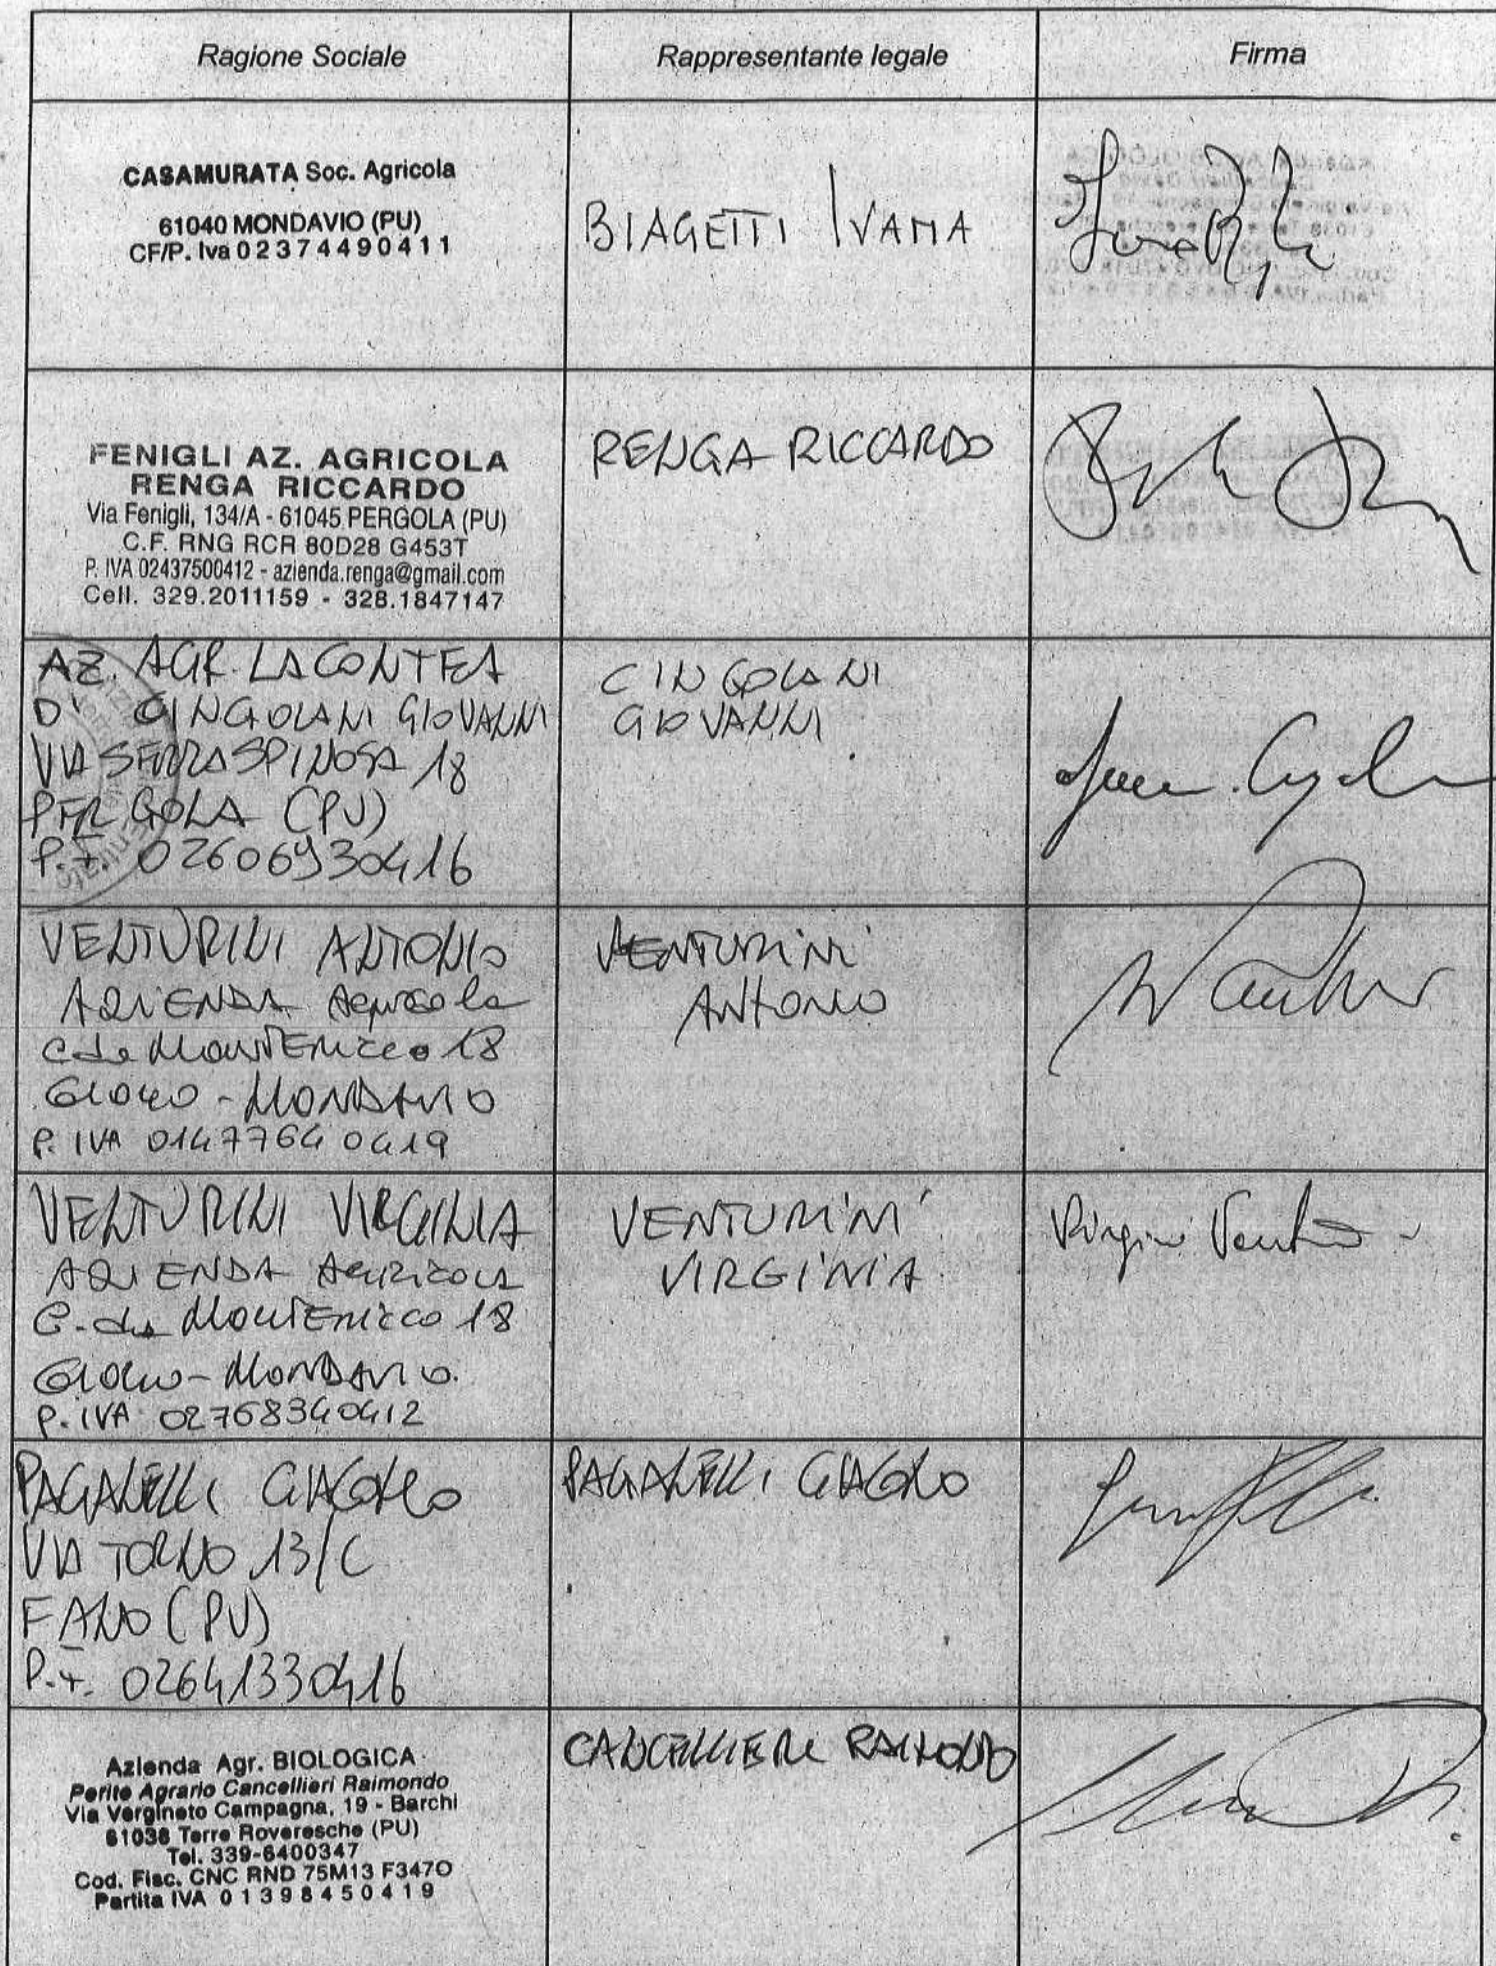 Ragione Sociale
Rappresentante legale
Firma
CASAMURATA Soc. Agricola
61040 MONDAVIO (PU)
CF/P. Iva 02374490411
BIAGETTI IVANA
FENIGLI AZ. AGRICOLA
RENGA RICCARDO
Via Fenigli, 134/A - 61045 PERGOLA (PU)
C.F. RNG RCR 80D28 G453T
P. IVA 02437500412 - azienda.renga@gmail.com
Cell. 329.2011159 - 328.1847147
RENGA RICCARDO
AZ. AGR. LA CONTEA
DI CINGOLANI GIOVANNI
VIA SERRASPINOSA 18
PERGOLA (PU)
P.I. 02606930416
CINGOLANI
GIOVANNI
VENTURINI ANTONIO
AZIENDA Agricola
C.da MONTERICCO 18
- MONDAVIO
P. IVA 01477640419
VENTURINI
ANTONIO
VENTURINI VIRGINIA
AZIENDA AGRICOLA
C.da MONTERICCO 18
- MONDAVIO
P. IVA 02768340412
VENTURINI
VIRGINIA
Virginia Venturini
PAGANELLI GIACOMO
VIA TORNO 13/C
FANO (PU)
P.I. 02641330416
PAGANELLI GIACOMO
Azienda Agr. BIOLOGICA
Perito Agrario Cancellieri Raimondo
Via Vergineto Campagna, 19 - Barchi
61038 Terre Roveresche (PU)
Tel. 339-6400347
Cod. Fisc. CNC RND 75M13 F347O
Partita IVA 01398450419
CANCELLIERI RAIMONDO